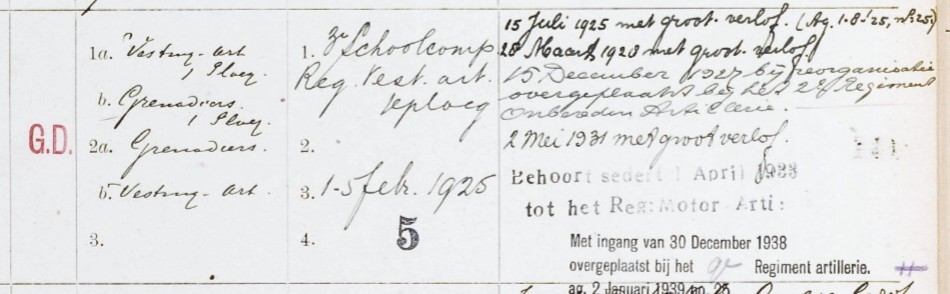 G.D.
1a. Vesting-art
1 Ploeg.
b. Grenadiers.
1 Ploeg.
2a. Grenadiers.
b. Vesting-art.
3.
1. 3e Schoolcomp
Reg. Vest. art.
1e ploeg
2.
3. 1-5 febr. 1925
4.
5
15 Juli 1925 met groot verlof. (Ag. 1-8-'25, no. 25)
28 Maart 1928 met groot verlof
15 December 1927 bij reorganisatie
overgeplaatst bij het 2e Regiment
Onbereden Artillerie.
2 Mei 1931 met groot verlof.
Behoort sedert 1 April 1933
tot het Reg: Motor Arti:
Met ingang van 30 December 1938
overgeplaatst bij het Regiment artillerie.
ag. 2 Januari 1939 no. 25